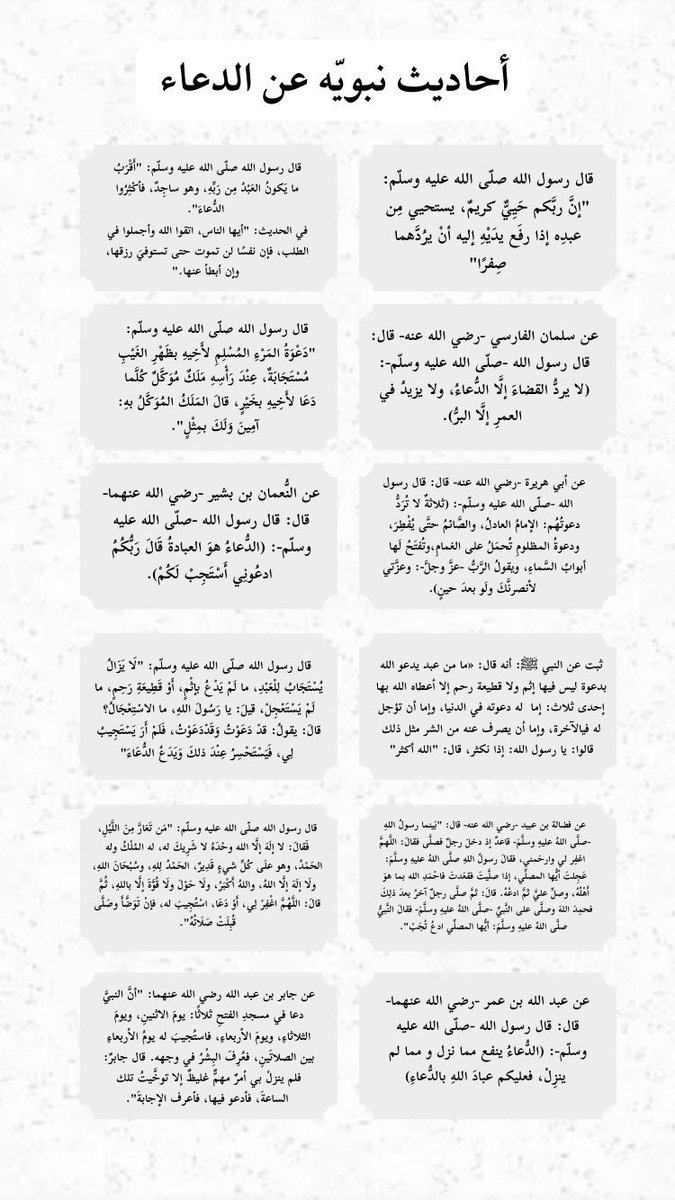 أحاديث نبويّه عن الدعاء
قال رسول الله صلّى الله عليه وسلّم:
"إنَّ ربَّكم حَيِيٌّ كريمٌ، يستحيي مِن
عبدِه إذا رفَع يدَيْهِ إليه أنْ يرُدَّهما
صِفرًا"
قال رسول الله صلّى الله عليه وسلّم: "أَقْرَبُ
ما يَكونُ العَبْدُ مِن رَبِّهِ، وهو ساجِدٌ، فأكْثِرُوا
الدُّعاءَ".
في الحديث: "أيها الناس، اتقوا الله وأجملوا في
الطلب، فإن نفسًا لن تموت حتى تستوفيَ رزقها،
وإن أبطأ عنها."
عن سلمان الفارسي -رضي الله عنه- قال:
قال رسول الله -صلّى الله عليه وسلّم-:
(لا يردُّ القضاءَ إلَّا الدُّعاءُ، ولا يزيدُ في
العمرِ إلَّا البرُّ).
قال رسول الله صلّى الله عليه وسلّم:
"دَعْوَةُ المَرْءِ المُسْلِمِ لأَخِيهِ بظَهْرِ الغَيْبِ
مُسْتَجَابَةٌ، عِنْدَ رَأْسِهِ مَلَكٌ مُوَكَّلٌ كُلَّما
دَعَا لأَخِيهِ بخَيْرٍ، قالَ المَلَكُ المُوَكَّلُ بهِ:
آمِينَ وَلَكَ بمِثْلٍ".
عن أبي هريرة -رضي الله عنه- قال: قال رسول
الله -صلّى الله عليه وسلّم-: (ثلاثةٌ لا تُرَدُّ
دعوتُهُم: الإمامُ العادلُ، والصَّائمُ حتَّى يُفْطِرَ،
ودعوةُ المظلومِ تُحمَلُ على الغمامِ،وتُفتَحُ لَها
أبوابُ السَّماءِ، ويقولُ الرَّبُّ -عزَّ وجلَّ-: وعزَّتي
لأنصرنَّكَ ولَو بعدَ حينٍ).
عن النُّعمان بن بشير -رضي الله عنهما-
قال: قال رسول الله -صلّى الله عليه
وسلّم-: (الدُّعاءُ هوَ العبادةُ قَالَ رَبُّكُمُ
ادعُونِي أَسْتَجِبْ لَكُمْ).
ثبت عن النبي ﷺ: أنه قال: «ما من عبد يدعو الله
بدعوة ليس فيها إثم ولا قطيعة رحم إلا أعطاه الله بها
إحدى ثلاث: إما له دعوته في الدنيا، وإما أن تؤجل
له فيالآخرة، وإما أن يصرف عنه من الشر مثل ذلك
قالوا: يا رسول الله: إذا نكثر، قال: "الله أكثر"
قال رسول الله صلّى الله عليه وسلّم: "لَا يَزَالُ
يُسْتَجَابُ لِلْعَبْدِ، ما لَمْ يَدْعُ بإثْمٍ، أَوْ قَطِيعَةِ رَحِمٍ، ما
لَمْ يَسْتَعْجِلْ، قيلَ: يا رَسُولَ اللهِ، ما الاسْتِعْجَالُ؟
قالَ: يقولُ: قدْ دَعَوْتُ وَقَدْدَعَوْتُ، فَلَمْ أَرَ يَسْتَجِيبُ
لِي، فَيَسْتَحْسِرُ عِنْدَ ذلكَ وَيَدَعُ الدُّعَاءَ"
عن فضالة بن عبيد -رضي الله عنه- قال: "بَينما رسولُ اللهِ
-صلَّى اللهُ عليهِ وسلَّمَ- قاعدٌ إذ دخلَ رجلٌ فصلَّى فقالَ: اللَّهمَّ
اغفِر لي وارحَمني، فقالَ رسولُ اللهِ صلَّى اللهُ عليهِ وسلَّمَ:
عَجِلتَ أيُّها المصلِّي، إذا صلَّيتَ فقعَدتَ فاحْمَدِ الله بما هوَ
أهْلُهُ، وصلِّ عليَّ ثمَّ ادعُهُ. قالَ: ثمَّ صلَّى رجلٌ آخرُ بعدَ ذلِكَ
فحمِدَ اللهَ وصلَّى على النَّبيِّ -صلَّى اللهُ عليهِ وسلَّمَ- فقالَ النَّبيُّ
صلَّى اللهُ عليهِ وسلَّمَ: أيُّها المصلِّي ادعُ تُجَبْ".
قال رسول الله صلّى الله عليه وسلّم: "مَن تَعَارَّ مِنَ اللَّيْلِ،
فَقالَ: لا إلَهَ إلَّا الله وحْدَهُ لا شَرِيكَ له، له المُلْكُ وله
الحَمْدُ، وهو علَى كُلِّ شيءٍ قَدِيرٌ، الحَمْدُ لِلهِ، وسُبْحَانَ اللهِ،
ولَا إلَهَ إلَّا اللهُ، واللهُ أكْبَرُ، ولَا حَوْلَ ولَا قُوَّةَ إلَّا باللهِ، ثُمَّ
قالَ: اللَّهُمَّ اغْفِرْ لِي، أوْ دَعَا، اسْتُجِيبَ له، فإنْ تَوَضَّأَ وصَلَّى
قُبِلَتْ صَلَاتُهُ".
عن عبد الله بن عمر -رضي الله عنهما-
قال: قال رسول الله -صلّى الله عليه
وسلّم-: (الدُّعاءُ ينفع مما نزل و مما لم
ينزِلْ، فعليكم عبادَ اللهِ بالدُّعاءِ)
عن جابر بن عبد الله رضي الله عنهما: "أنَّ النبيَّ
دعا في مسجدِ الفتحِ ثلاثًا: يومَ الاثنينِ، ويومَ
الثلاثاءِ، ويومَ الأربعاءِ، فاستُجيبَ له يومُ الأربعاءِ
بين الصلاتَينِ، فعُرِفَ البِشْرُ في وجهه. قال جابرٌ:
فلم ينزلْ بي أمرٌ مهمٌّ غليظٌ إلا توخَّيتُ تلك
الساعةَ، فأدعو فيها، فأعرف الإجابةَ".